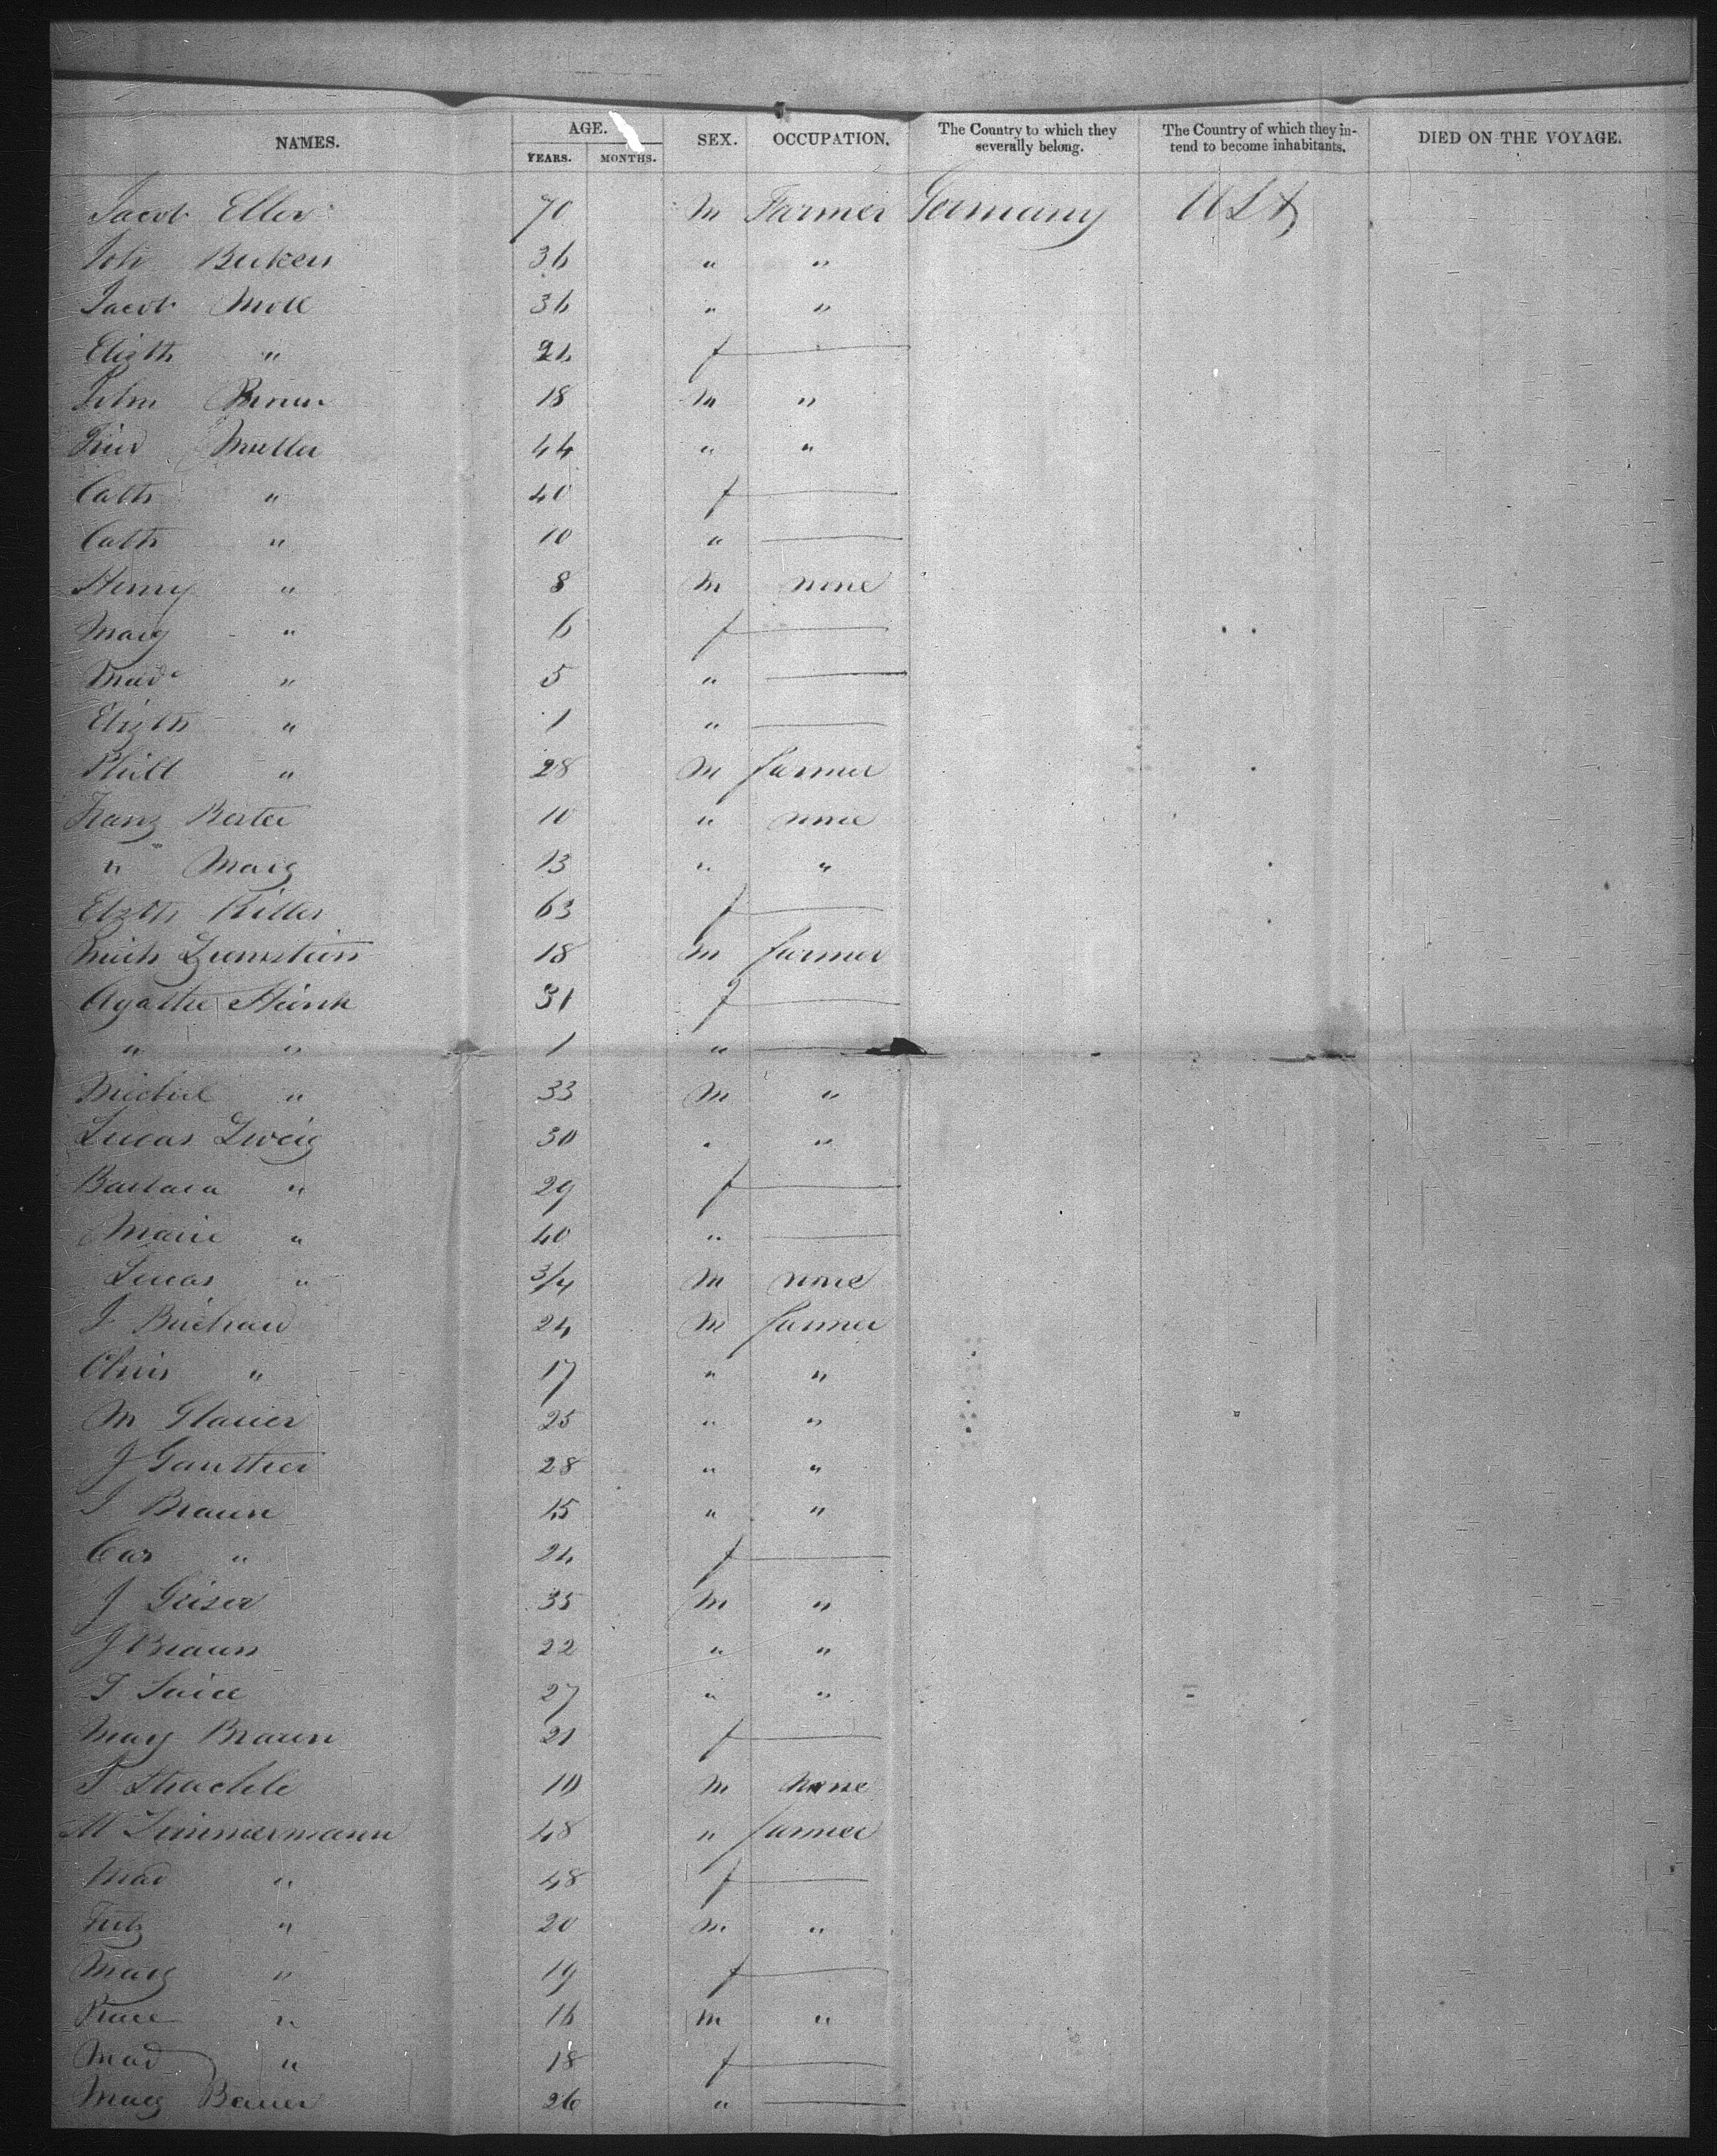 NAMES. AGE. YEARS. MONTHS. SEX. OCCUPATION. The Country to which they severally belong. The Country of which they intend to become inhabitants. DIED ON THE VOYAGE.
Jacob Eller 70 M Farmer Germany USA
Joh Beckers 36 " "
Jacob Moll 36 " "
Elizth " 24 f
18 M "
Mueller 44 " "
Cath " 40 f
Cath " 10 "
Henry " 8 M none
Marg " 6 f
Mad " 5 "
Elizth " 1 "
Phill " 28 M farmer
Franz Bester 10 " none
" Marg 13 " "
Elizth Ritter 63 f
18 M farmer
Agathe 31 f
" " 1 "
Michael " 33 M "
Lucas Zweig 30 " "
Barbara " 29 f
Marie " 40 "
Lucas " 3/4 M none
J 24 M farmer
Chris " 17 " "
M Glauer 25 " "
J Gauther 28 " "
J Braun 15 " "
Car " 24 f
J Geiser 35 M "
J Braun 22 " "
27 " "
Mary Braun 21 f
10 M none
M Zimmermann 48 " farmer
Mad " 48 f
Fritz " 20 M "
Marg " 19 f
" 16 M "
Mad " 18 f
Marg Bauer 26 "